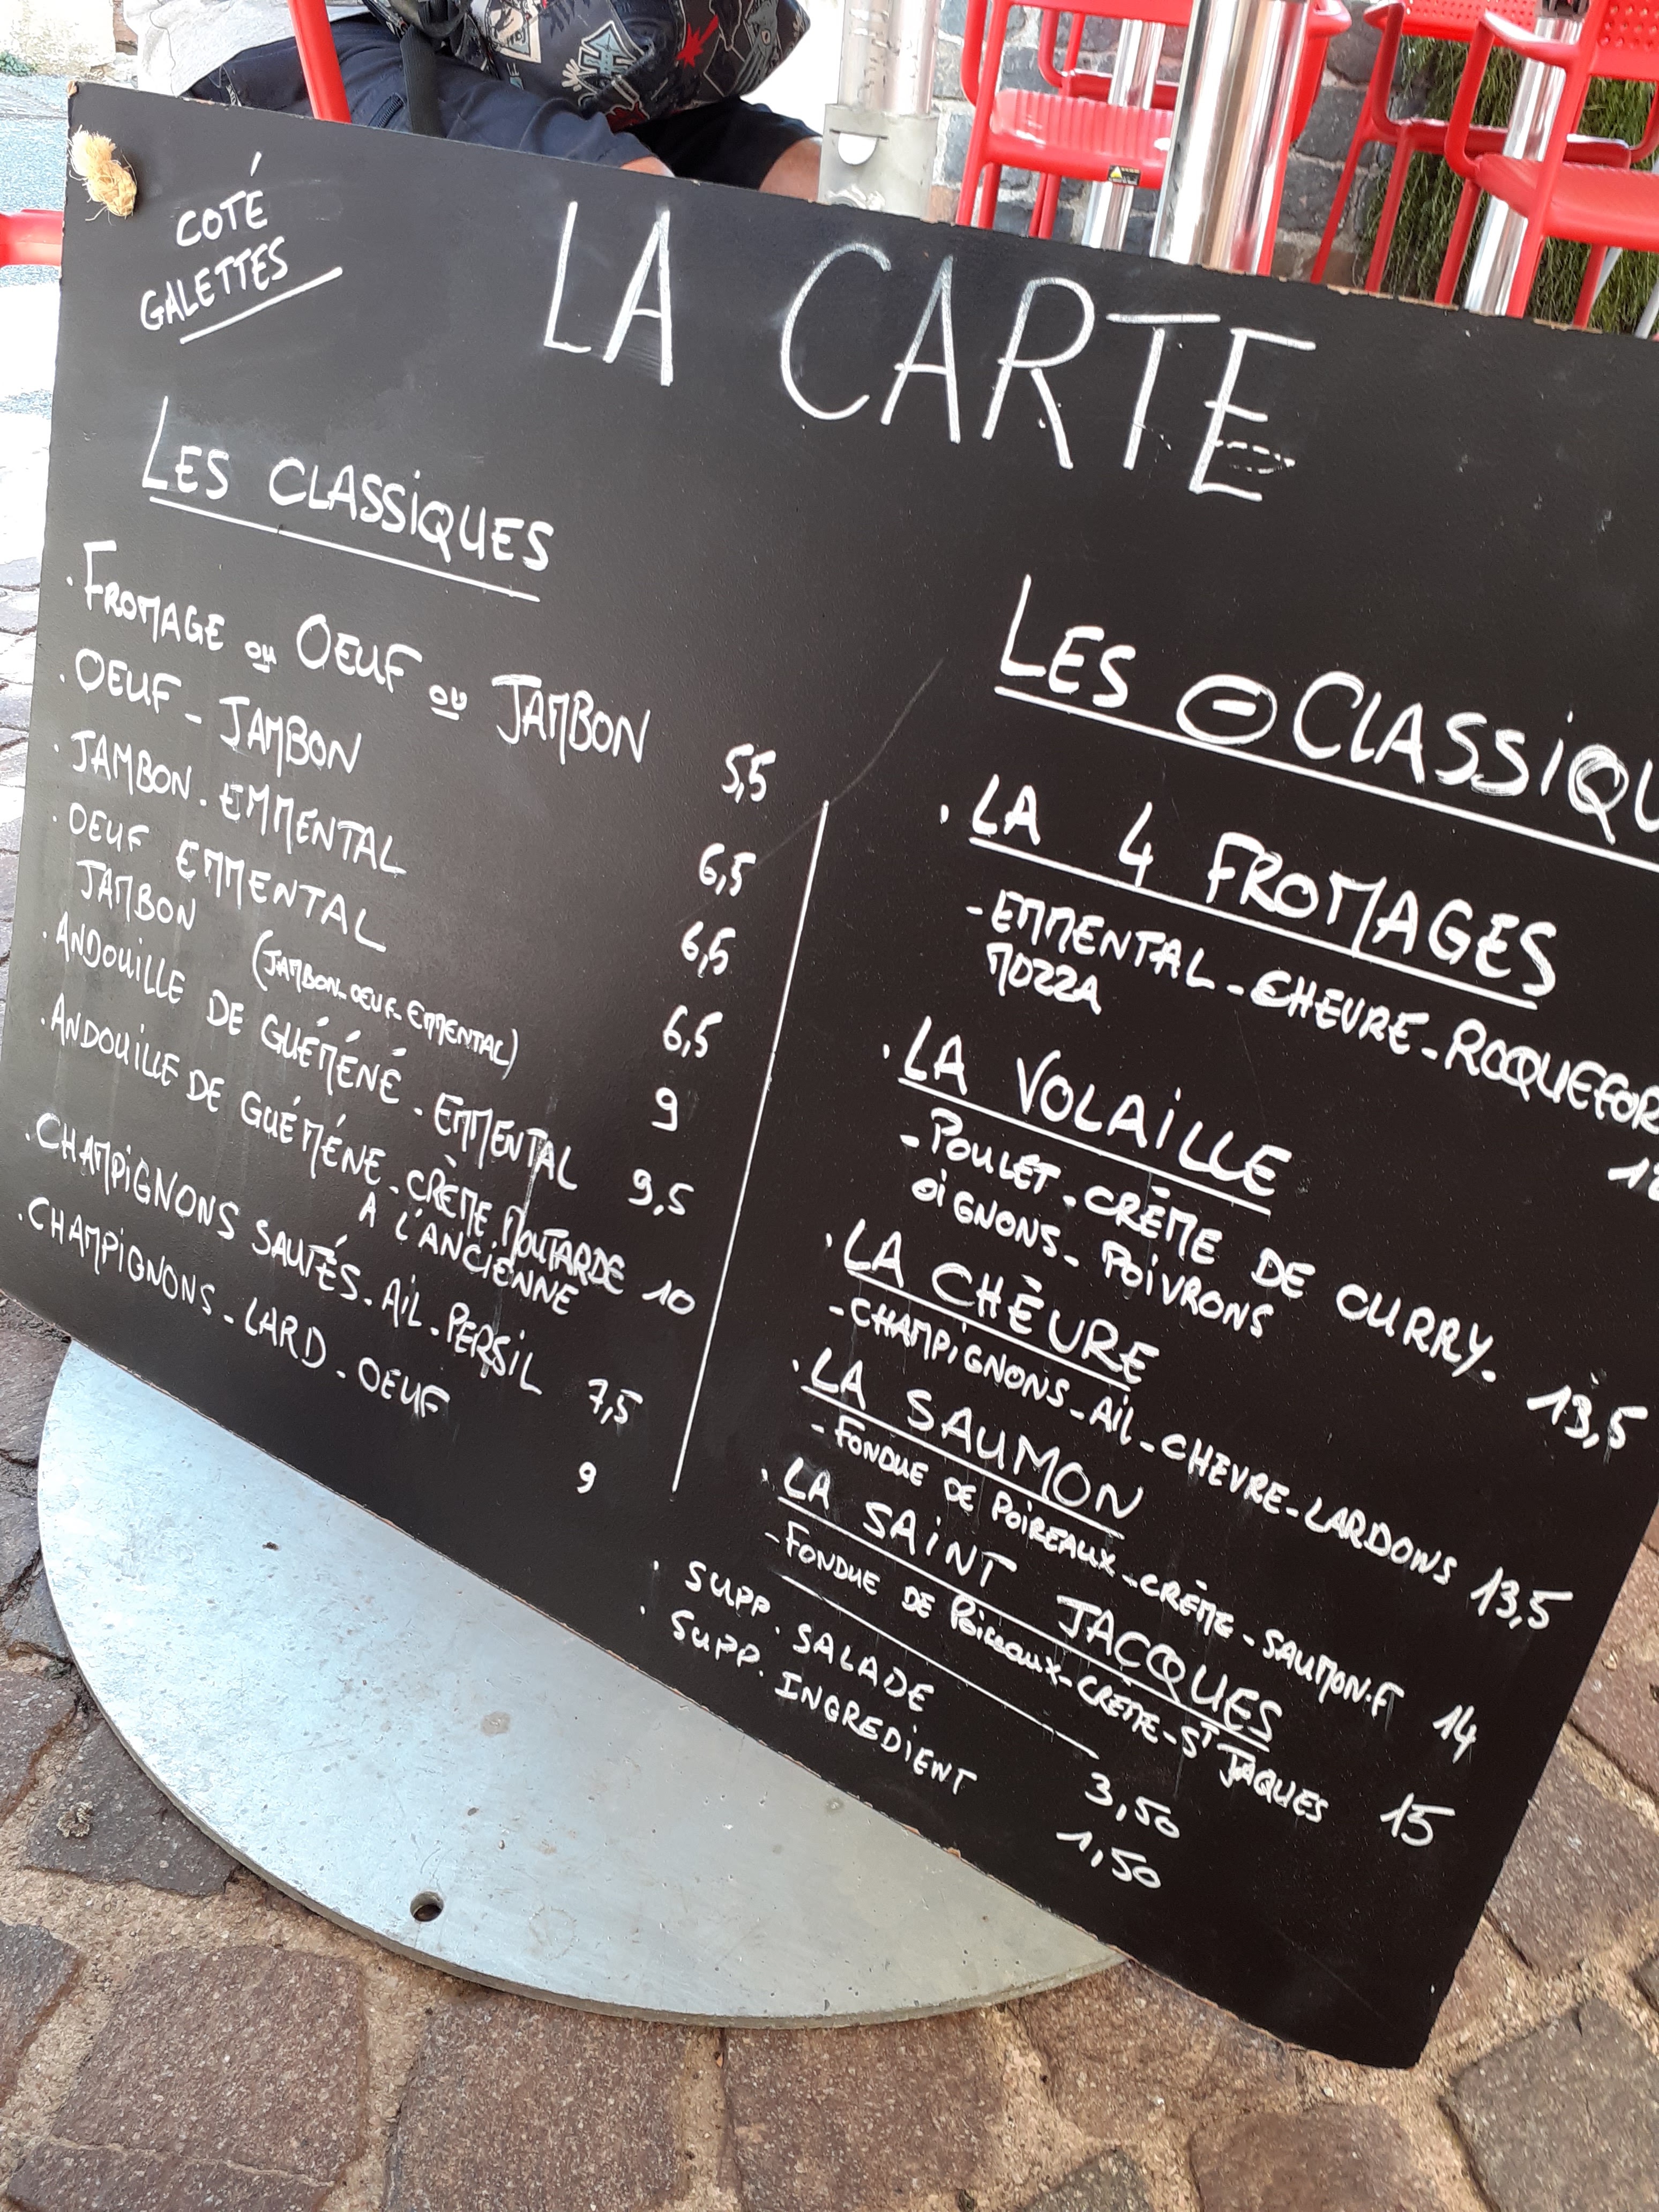 COTÉ
GALETTES
LA CARTE
LES CLASSIQUES
. FROMAGE ou OEUF ou JAMBON 5,5
. OEUF - JAMBON 6,5
. JAMBON . EMMENTAL 6,5
. OEUF EMMENTAL 6,5
JAMBON (JAMBON - OEUF - EMMENTAL) 9
. ANDOUILLE DE GUÉMÉNÉ . EMMENTAL 9,5
. ANDOUILLE DE GUÉMÉNÉ - CRÈME MOUTARDE 10
A L'ANCIENNE
. CHAMPIGNONS SAUTÉS - AIL - PERSIL 7,5
. CHAMPIGNONS - LARD - OEUF 9
LES - CLASSIQU
. LA 4 FROMAGES
- EMMENTAL - CHEVRE - ROQUEFOR
MOZZA
. LA VOLAILLE
- POULET - CRÈME DE CURRY. 13,5
OIGNONS - POIVRONS
. LA CHÈVRE
- CHAMPIGNONS - AIL - CHEVRE - LARDONS 13,5
. LA SAUMON
- FONDUE DE POIREAUX - CRÈME - SAUMON.F 14
. LA SAINT JACQUES
- FONDUE DE POIREAUX - CRÈME - ST JAQUES 15
. SUPP. SALADE 3,50
. SUPP. INGREDIENT 1,50